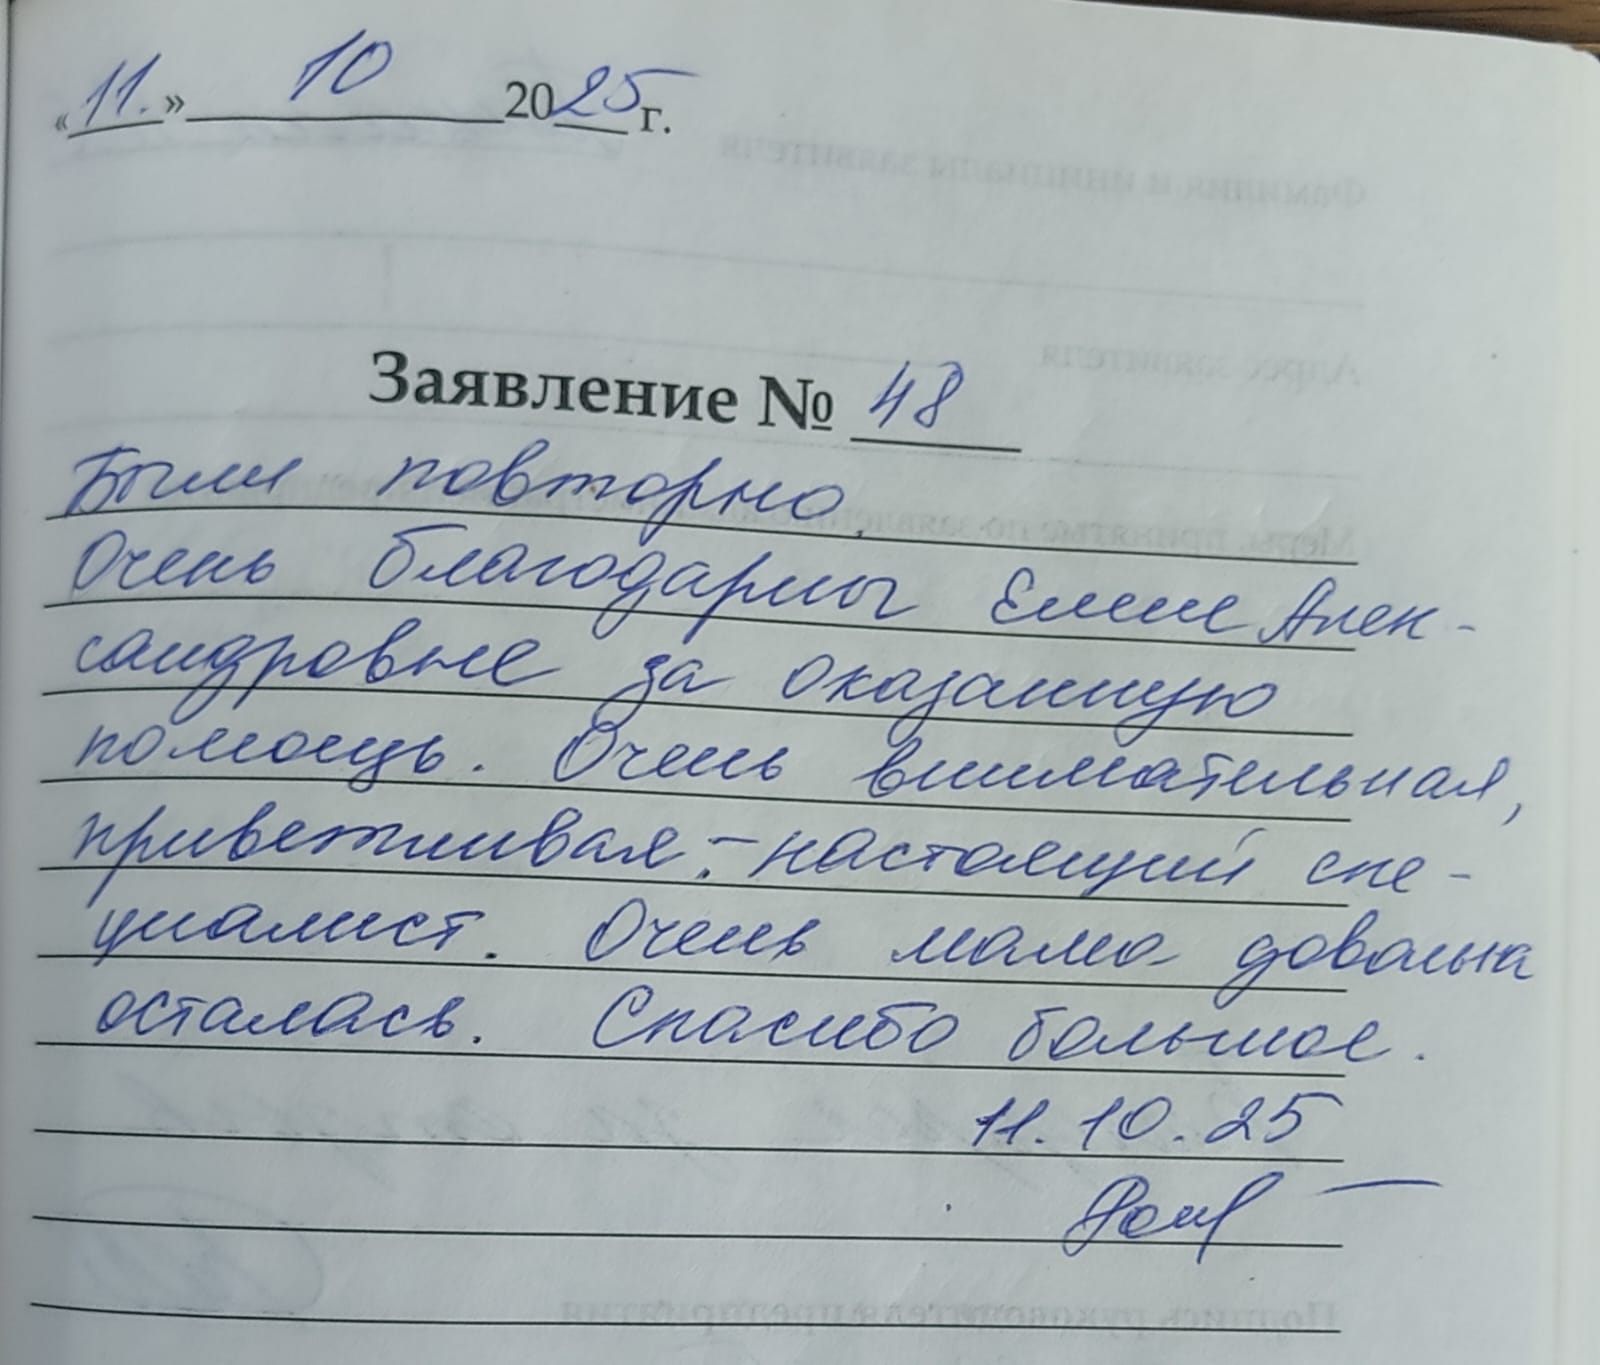 «11.» 10 2025 г.
Заявление № 48
Были повторно.
Очень благодарны Елене Алек-
сандровне за оказанную
помощь. Очень внимательная,
приветливая, - настоящий спе-
циалист. Очень мама довольна
осталась. Спасибо большое.
11.10.25